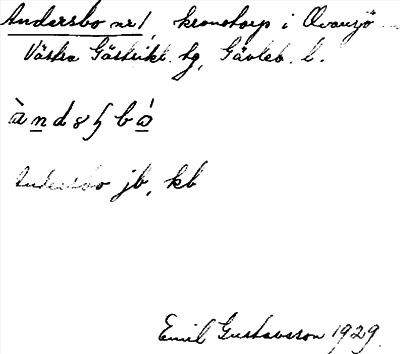 Andersbo nr 1, kronotorp i Ovansjö
Västra Gästrikl. tg, Gävleb. l.
ànd8ꞩ bá
Andersbo jb, kb
Emil Gustavsson 1929.